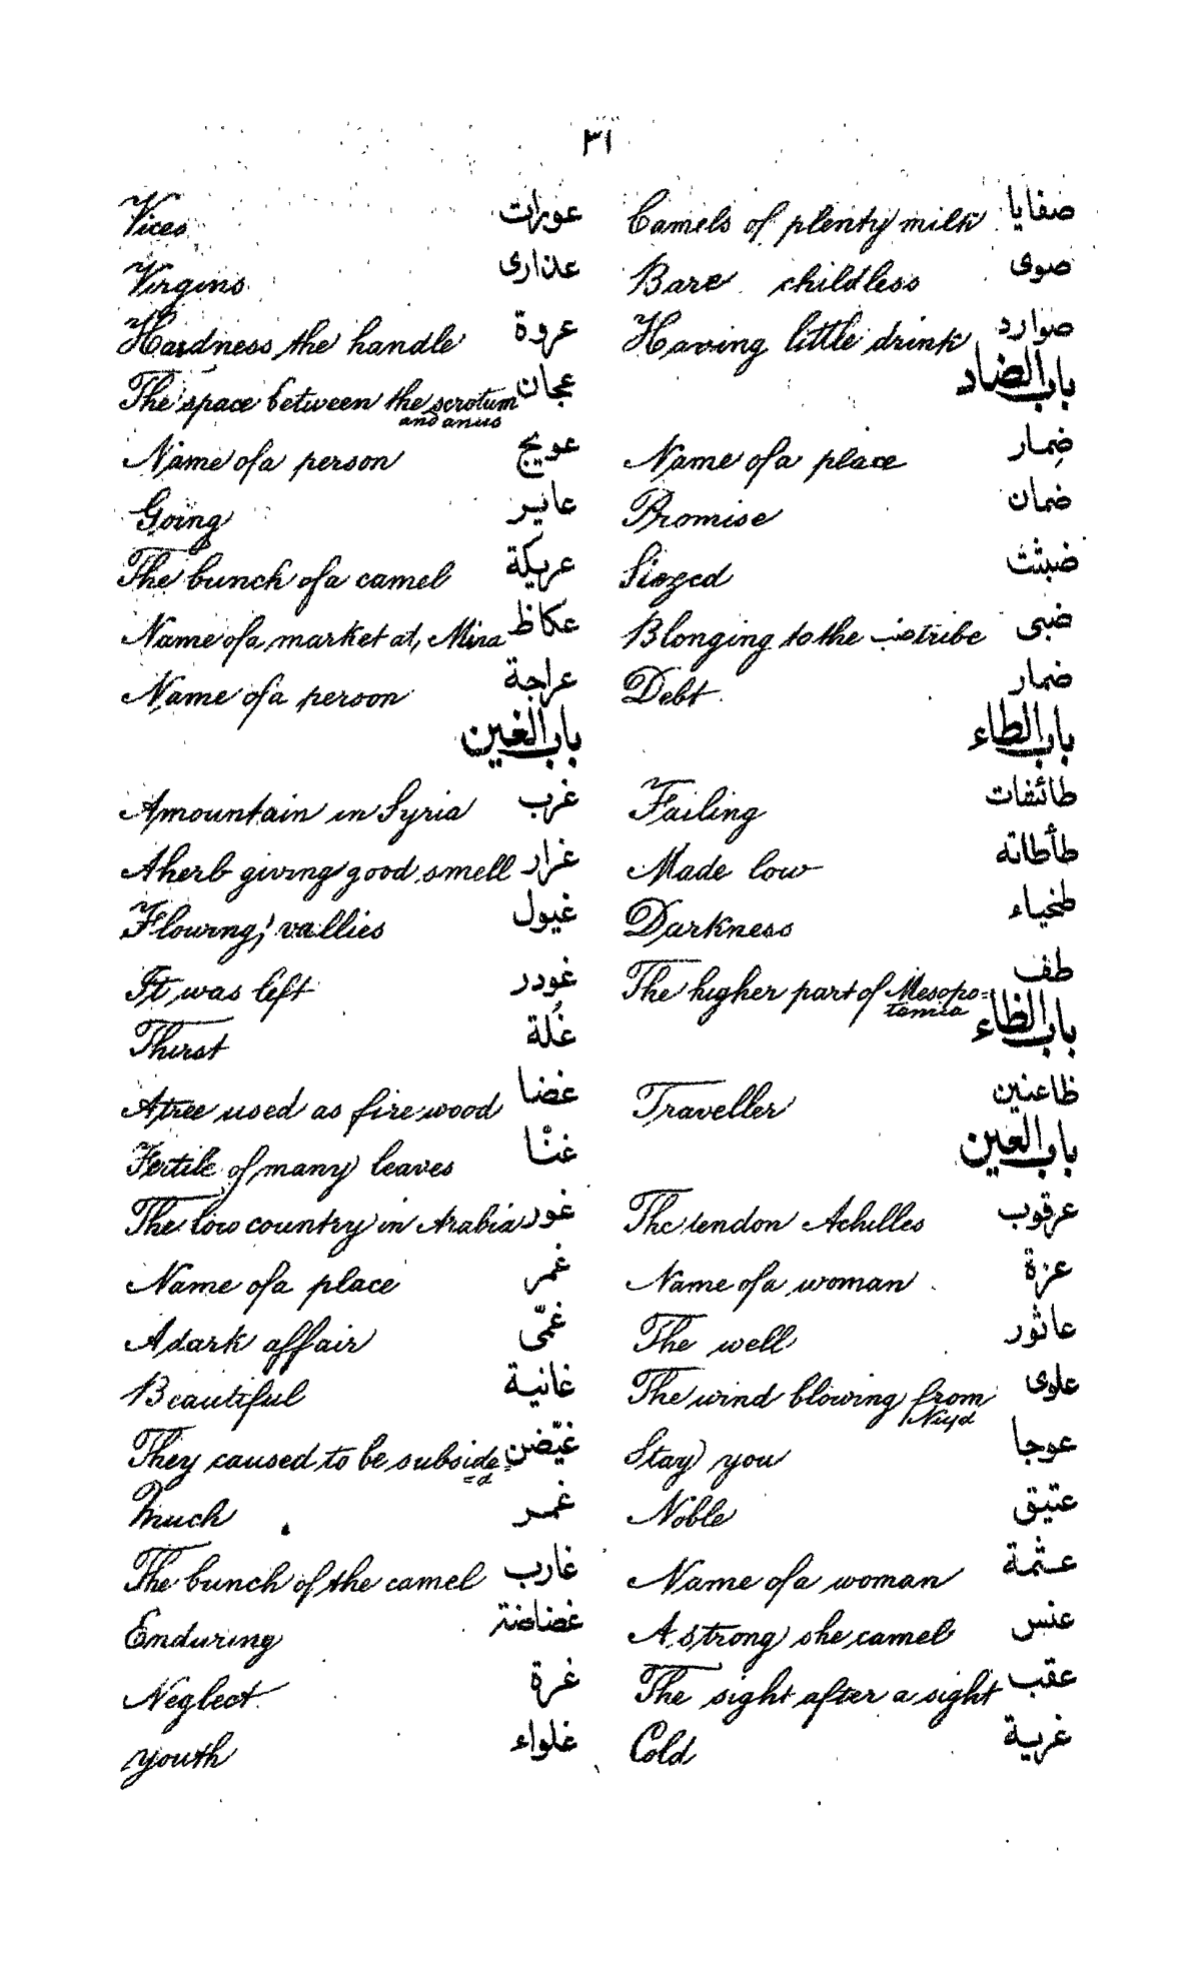 ٣١
صفايا Camels of plenty milk
صوى Bare childless
صوارد Having little drink
باب الضاد
ضمار Name of a place
ضمان Promise
ضبثت Siezed
ضبى Blonging to the ضب tribe
ضمار Debt
باب الطاء
طائفات Failing
طأطاته Made low
طخياء Darkness
طف The higher part of Mesopo=
tamia
باب الظاء
ظاعنين Traveller
باب العين
عرقوب The tendon Achilles
عزة Name of a woman
عاثور The well
علوى The wind blowing from
Nejd
عوجا Stay you
عتيق Noble
عثمة Name of a woman
عنس A strong she camel
عقب The sight after a sight
عرية Cold
عورات Vices
عذارى Virgins
عروة Hardness, the handle
عجان The space between the scrotum
and anus
عويج Name of a person
عاير Going
عريكة The bunch of a camel
عكاظ Name of a market at, Mina
عراجة Name of a person
باب الغين
غرب A mountain in Syria
غرار A herb giving good smell
غيول Flowing; vallies
غودر It was left
غُلة Thirst
غضا A tree used as fire wood
غنّا Fertile of many leaves
غور The low country in Arabia
غمر Name of a place
غمّى A dark affair
غانية Beautiful
غيّضن They caused to be subside=
=d
غمر Much
غارب The bunch of the camel
غضاضة Enduring
غرة Neglect
غلواء youth